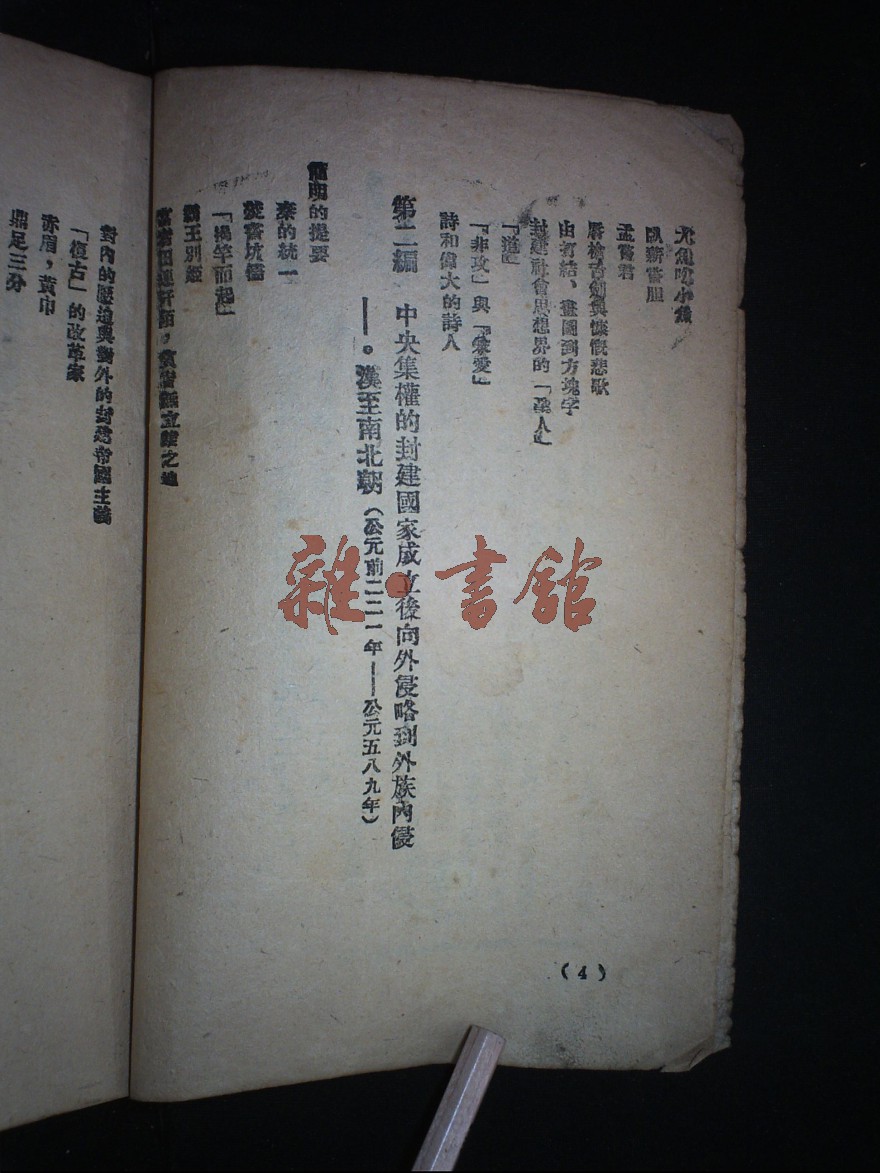 大魚吃小魚
臥薪嘗膽
孟嘗君
脣槍舌劍與慷慨悲歌
由打結、畫圖到方塊字
封建社會思想界的「聖人」
「道」
「非攻」與「兼愛」
詩和偉大的詩人
第二編 中央集權的封建國家成立後向外侵略到外族內侵
——。漢至南北朝（公元前二二一年——公元五八九年）
簡明的提要
秦的統一
焚書坑儒
「揭竿而起」
霸王別姬
富者田連阡陌，貧者無立錐之地
對內的壓迫與對外的封建帝國主義
「復古」的改革家
赤眉，黃巾
鼎足三分
(4)
雜·書館